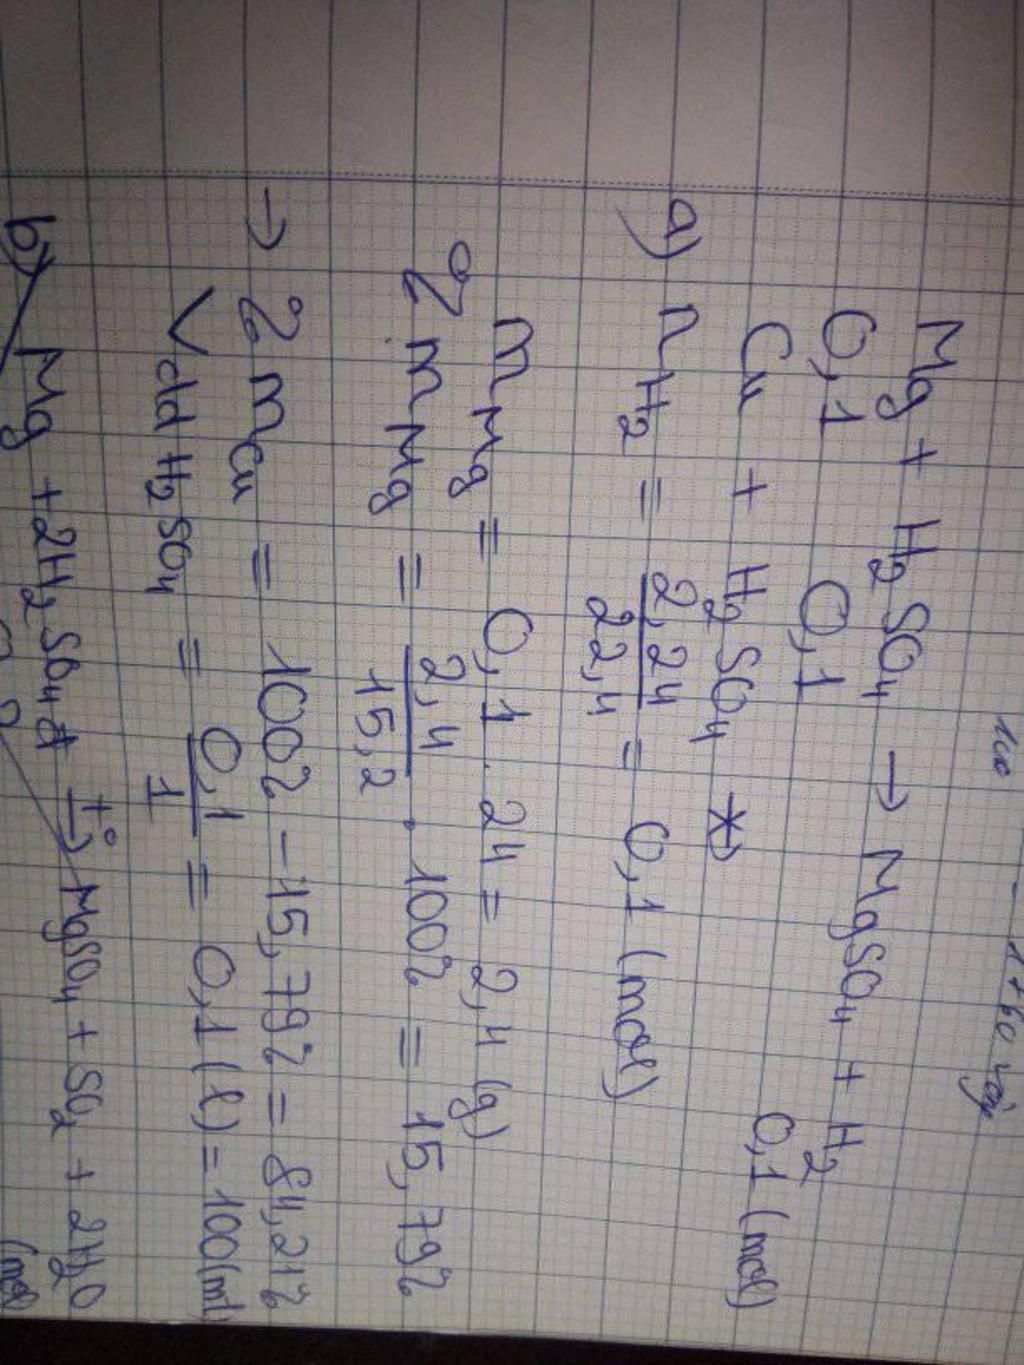 Mg + H2SO4 → MgSO4 + H2
0,1 0,1 0,1 (mol)
Cu + H2SO4
a) nH2 = 2,24/22,4 = 0,1 (mol)
mMg = 0,1 . 24 = 2,4 (g)
% mMg = 2,4/15,2 . 100% = 15,79%
→ % mCu = 100% - 15,79% = 84,21%
Vdd H2SO4 = 0,1/1 = 0,1 (l) = 100 (ml)
b) Mg + 2H2SO4đ t°→ MgSO4 + SO2 + 2H2O
(mol)